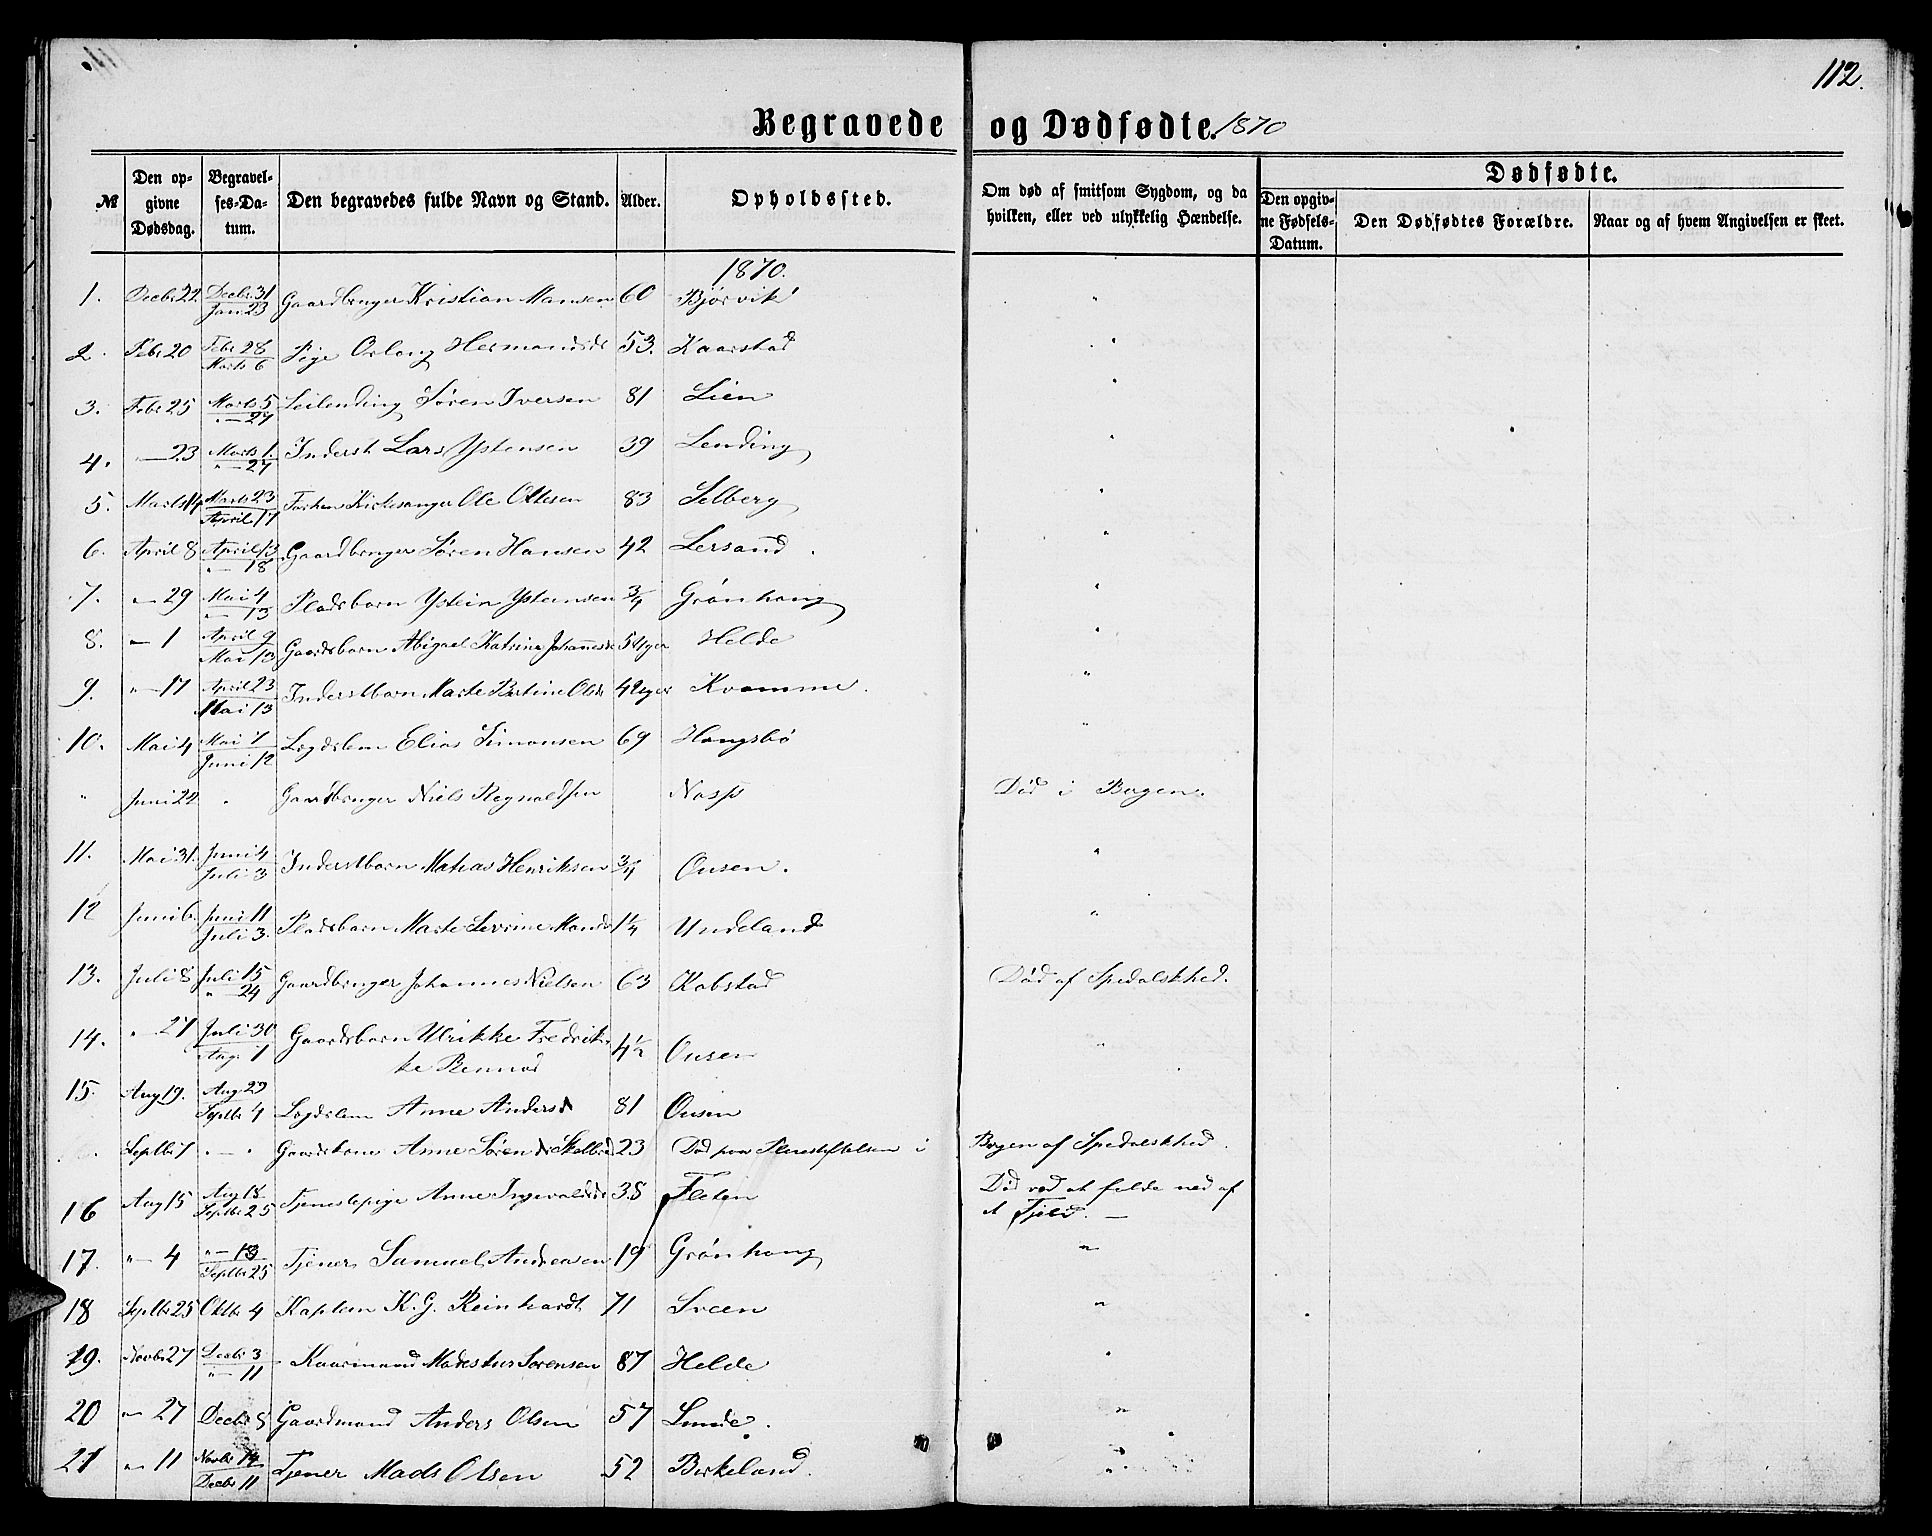 112.
Begravede og Dødfødte. 1870
№
Den opgivne Dødsdag.
Begravelses-Datum.
Den begravedes fulde Navn og Stand.
Alder.
Opholdssted.
Om død af smitsom Sygdom, og da hvilken, eller ved ulykkelig Hændelse.
Dødfødte.
Den opgivne Fødsels-Datum.
Den Dødfødtes Forældre.
Naar og af hvem Angivelsen er skeet.
1870.
1. Decbr 22 Decbr 31 Jan 23 Gaardbruger Kristian Mansen 60 Bjørvik "
2. Febr 20 Febr 28 Marts 6 Pige Hermandsdr 53. Kaarstad "
3. Febr 25 Marts 5 " — 27 Leilending Søren Iversen 81 Lien "
4. " — 23 Marts 1. " — 27 Inderst Lars Ystensen 39 Lending "
5. Marts 14 Marts 23 April 17 Kirkesanger Ole Ottesen 83 Selberg "
6. April 8 April 13 " — 18 Gaardbruger Søren Hansen 42 Lersand. "
7. " — 29 Mai 4 " — 13 Pladsbarn Ystein Ystensen 3/4 Grønhaug "
8. " — 1 April 9 Mai 13 Gaardsbarn Abigael Katrine Johannesdr 5 Uger Helde "
9. " — 17 April 23 Mai 13 Inderstbarn Marte Bertine Olsdr 4 Uger Kvamme. "
10. Mai 4 Mai 7 Juni 12 Lægdslem Elias Simonsen 69 Haugsbø "
" Juni 22 " Gaardbruger Niels Regnaldsen Død i Bergen.
11. Mai 31. Juni 4 Juli 3 Inderstbarn Matias Henriksen 3/4 Ousen. "
12 Juni 6. Juni 11 Juli 3. Pladsbarn Marte Severine Mandr 1 1/4 Undeland "
13. Juli 8 Juli 15 " — 24 Gaardbruger Johannes Nielsen 63 Kobstad Død af Spedalskhed.
14. " — 27 Juli 30 Aug. 7 Gaardsbarn Ulrikke Fredrikke 4 1/2 Ousen "
15. Aug 19. Septbr 4 Lægdslem Anne Andersdr 81 Ousen
Septbr 7 " — " Gaardskone Anne Sørensdr 23 Død paa Pleiestiftelsen i Bergen af Spedalskhed.
16 Aug 15 Aug 18 Septbr 25 Tjenestepige Anne Ingevaldsdr 38 Fleten Død ved at falde ned af et Fjeld. —
17. " — 4 " — 13 Septbr 25 Tjener Samuel Andreasen 19 Grønhaug "
18 Septbr 25 Oktbr 4 Kaptein K. G. Reinhardt 71 Sveen "
19. Novbr 27 Decbr 3 " — 11 Kaarmand Modestus Sørensen 87 Helde "
20 " — 27 Decbr 8 Gaardmand Anders Olsen 57 Lunde. "
21 " — 11 Novbr 14 Decbr 11 Tjener Mads Olsen 52 Birkeland. "